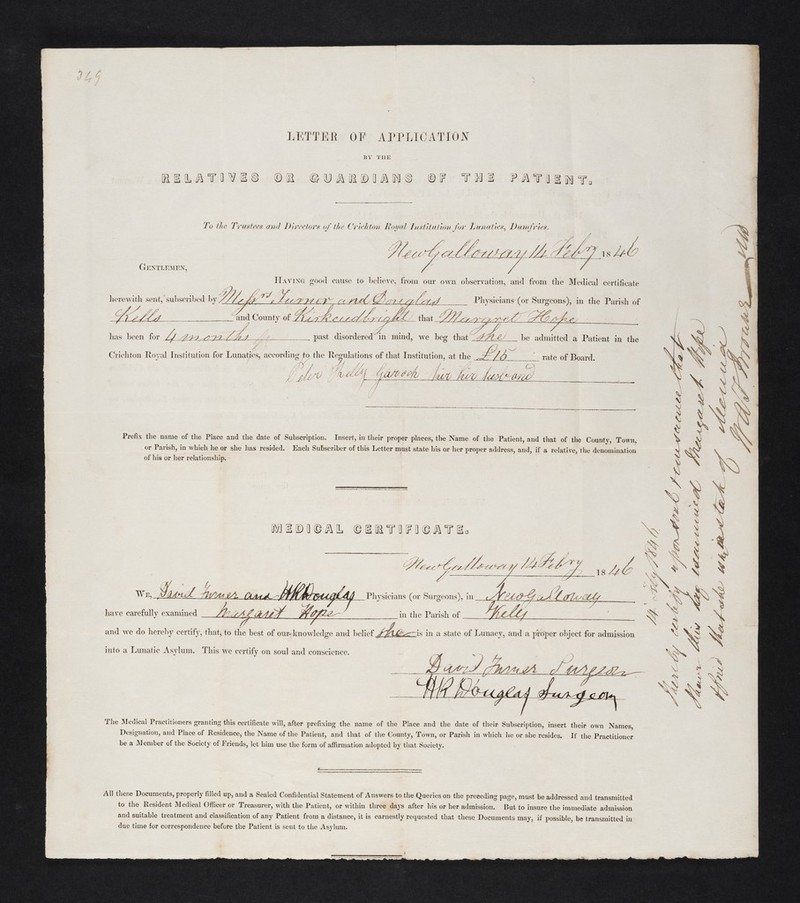 349
LETTER OF APPLICATION
BY THE
RELATIVES OR GUARDIANS OF THE PATIENT.
To the Trustees and Directors of the Crichton Royal Institution for Lunatics, Dumfries.
New Galloway 14 Febry 1846
GENTLEMEN,
HAVING good cause to believe, from our own observation, and from the Medical certificate
herewith sent, subscribed by Messrs Turner and Douglas Physicians (or Surgeons), in the Parish of
Kells and County of Kirkcudbright that Margret Hope
has been for 4 months past disordered in mind, we beg that she be admitted a Patient in the
Crichton Royal Institution for Lunatics, according to the Regulations of that Institution, at the £15 rate of Board.
her husband
Prefix the name of the Place and the date of Subscription. Insert, in their proper places, the Name of the Patient, and that of the County, Town,
or Parish, in which he or she has resided. Each Subscriber of this Letter must state his or her proper address, and, if a relative, the denomination
of his or her relationship.
MEDICAL CERTIFICATE.
New Galloway 14 Febry 1846
WE, David Turner and HR Douglas Physicians (or Surgeons), in New Galloway
have carefully examined Margaret Hope in the Parish of Kells
and we do hereby certify, that, to the best of our knowledge and belief she is in a state of Lunacy, and a proper object for admission
into a Lunatic Asylum. This we certify on soul and conscience.
David Turner Surgeon
HR Douglas Surgeon
The Medical Practitioners granting this certificate will, after prefixing the name of the Place and the date of their Subscription, insert their own Names,
Designation, and Place of Residence, the Name of the Patient, and that of the County, Town, or Parish in which he or she resides. If the Practitioner
be a Member of the Society of Friends, let him use the form of affirmation adopted by that Society.
All these Documents, properly filled up, and a Sealed Confidential Statement of Answers to the Queries on the preceding page, must be addressed and transmitted
to the Resident Medical Officer or Treasurer, with the Patient, or within three days after his or her admission. But to insure the immediate admission
and suitable treatment and classification of any Patient from a distance, it is earnestly requested that these Documents may, if possible, be transmitted in
due time for correspondence before the Patient is sent to the Asylum.
1846
I hereby certify upon soul & conscience that
I have this day examined Margaret Hope
& find that she is in a state of
W A F Browne MD